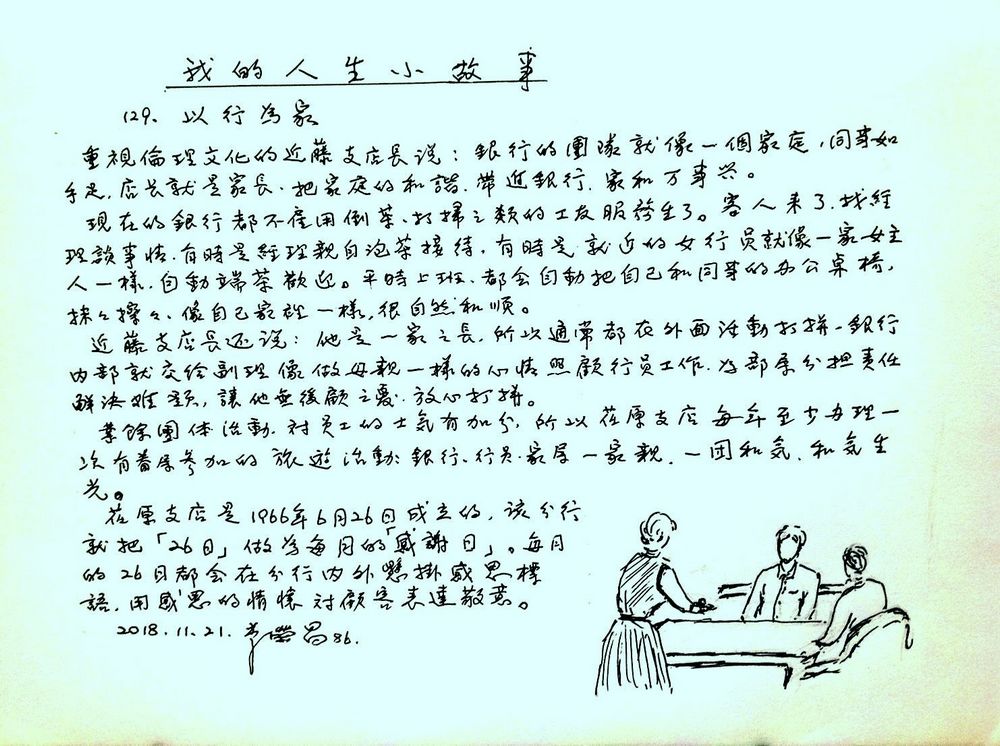 我的人生小故事
129、以行為家
重視倫理文化的近藤支店長说：銀行的團隊就像一個家庭，同事如
手足，店长就是家長、把家庭的和諧、帶進銀行、家和万事兴。
現在的銀行都不雇用倒茶、打掃之類的工友服務生了。客人来了、找經
理談事情、有時是經理親自泡茶接待，有時是就近的女行员就像一家女主
人一樣、自動端茶歡迎。平時上班、都会自動把自己和同事的办公桌椅，
抹々擦々、像自己家裡一樣，很自然和順。
近藤支店長还说：他是一家之長，所以通常都在外面活動打拼、銀行
内部就交给副理像做母親一樣的心情照顧行员工作、为部屬分担責任
解決难題，讓他無後顧之憂、放心打拼。
業餘團体活動、対员工的士気有加分，所以荏原支店每年至少办理一
次有眷屬参加的旅遊活動：銀行、行员、家屬一家親、一团和気、和気生
光。
荏原支店是1966年6月26日成立的，该分行
就把「26日」做為每月的「感謝日」。每月
的26日都会在分行内外懸掛感恩標
語，用感恩的情懷対顧客表達敬意。
2018.11.21. 榮昌86.